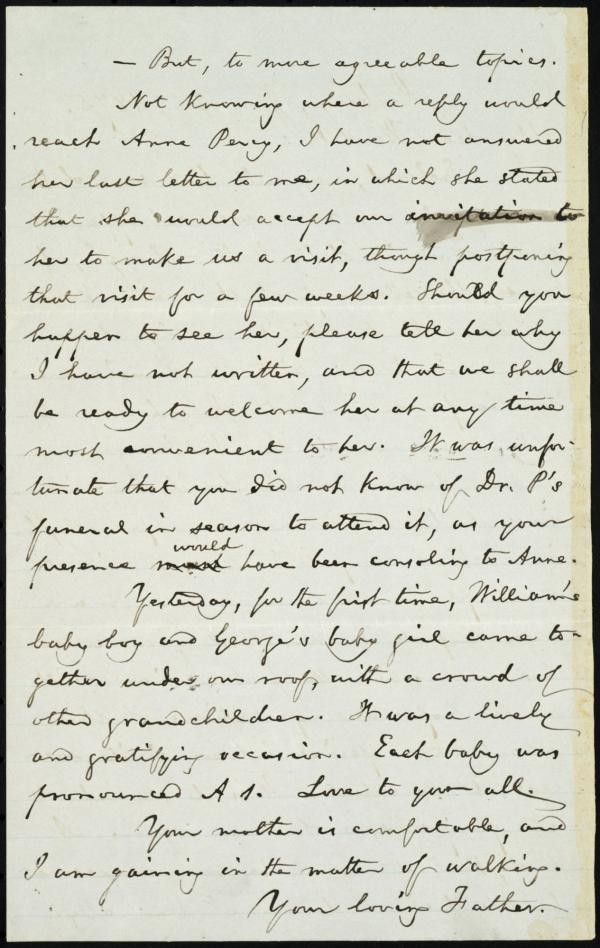 — But, to more agreeable topics.
Not knowing where a reply would
reach Anne Percy, I have not answered
her last letter to me, in which she stated
that she would accept our invitation to
her to make us a visit, though postponing
that visit for a few weeks. Should you
happen to see her, please tell her why
I have not written, and that we shall
be ready to welcome her at any time
most convenient to her. It was unfor-
tunate that you did not know of Dr. P's
funeral in season to attend it, as your
would
presence must have been consoling to Anne.
Yesterday, for the first time, William's
baby boy and George's baby girl came to-
gether under our roof, with a crowd of
other grandchildren. It was a lively
and gratifying occasion. Each baby was
pronounced A 1. Love to you all.
Your mother is comfortable, and
I am gaining in the matter of walking.
Your loving Father.